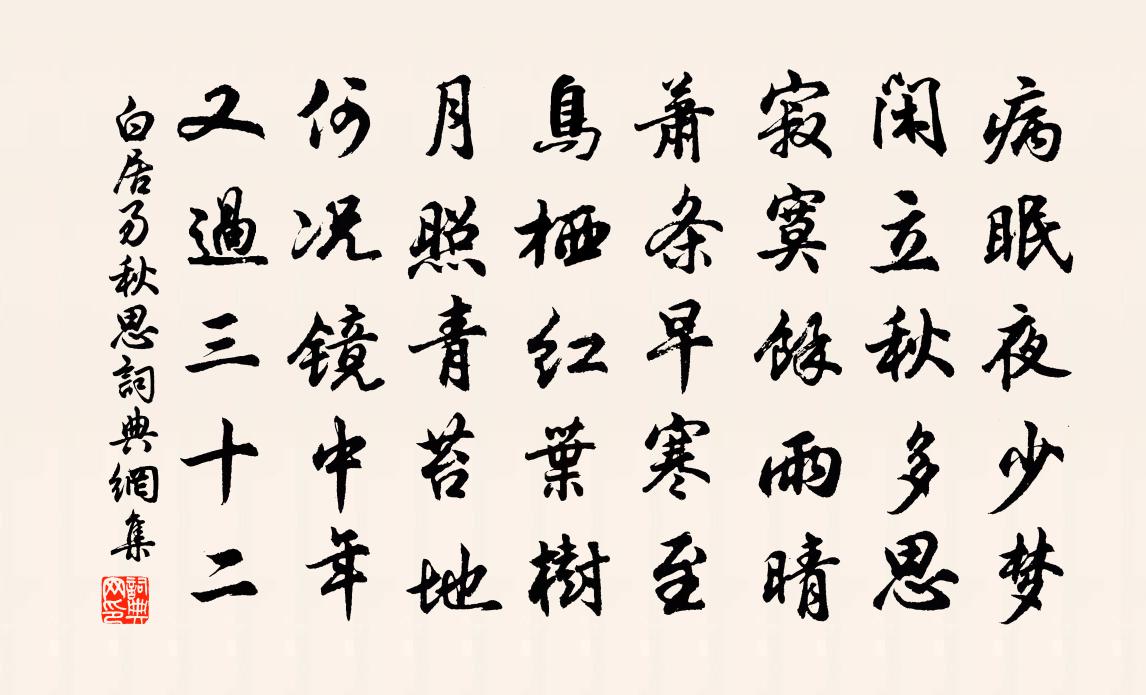 病眠夜少梦
闲立秋多思
寂寞餘雨晴
蕭条早寒至
鳥栖红葉樹
月照青苔地
何况镜中年
又過三十二
白居易秋思詞典網集
詞典网印